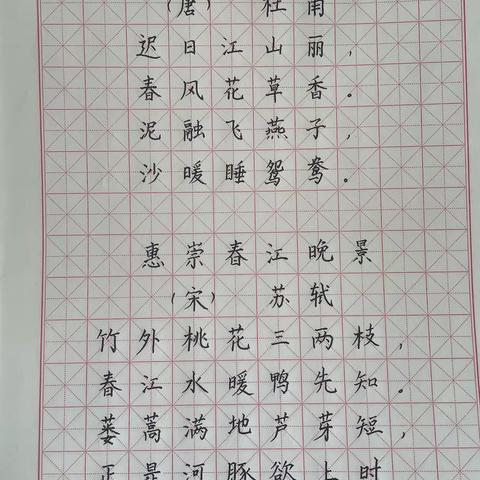 (唐) 杜甫
迟日江山丽，
春风花草香。
泥融飞燕子，
沙暖睡鸳鸯。
惠崇春江晚景
(宋) 苏轼
竹外桃花三两枝，
春江水暖鸭先知。
蒌蒿满地芦芽短，
正是河豚欲上时